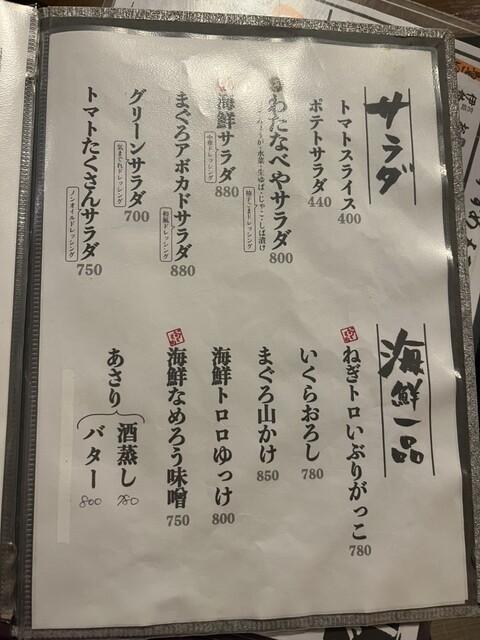 サラダ
トマトスライス
400
ポテトサラダ
440
わたなべやサラダ
水菜・生ゆば・じゃこ・しば漬け
柚子ごまドレッシング
800
海鮮サラダ
中華ドレッシング
880
まぐろアボカドサラダ
和風ドレッシング
880
グリーンサラダ
気まぐれドレッシング
700
トマトたくさんサラダ
ノンオイルドレッシング
750
海鮮一品
ねぎトロいぶりがっこ
780
いくらおろし
780
まぐろ山かけ
850
海鮮トロロゆっけ
800
海鮮なめろう味噌
750
あさり
酒蒸し
780
バター
800